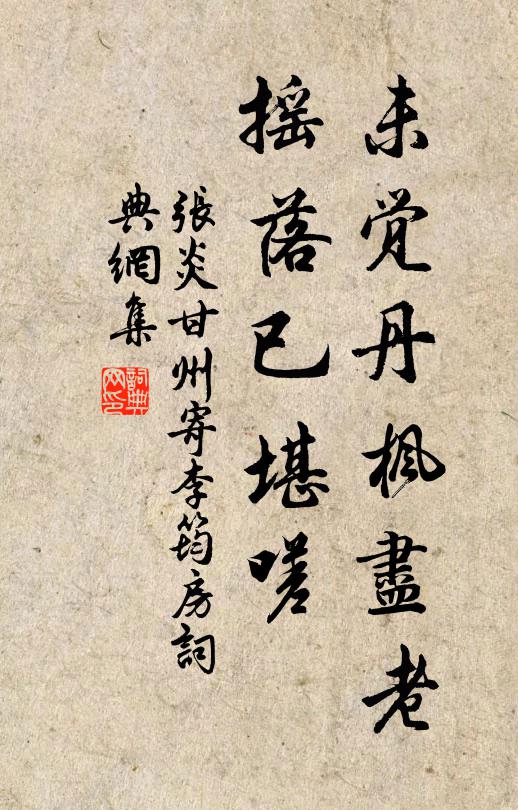 未覚丹楓盡老
揺落已堪嗟
張炎甘州寄李筠房詞
典網集
詞典網印